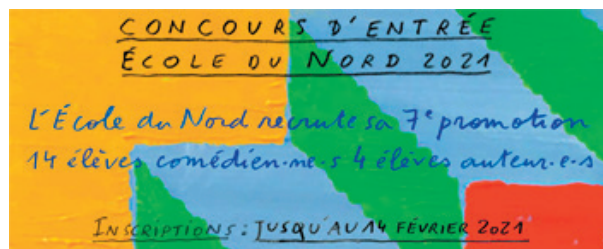 CONCOURS D'ENTRÉE
ÉCOLE DU NORD 2021
L'École du Nord recrute sa 7e promotion
14 élèves comédien·ne·s 4 élèves auteur·e·s
INSCRIPTIONS : JUSQU'AU 14 FÉVRIER 2021